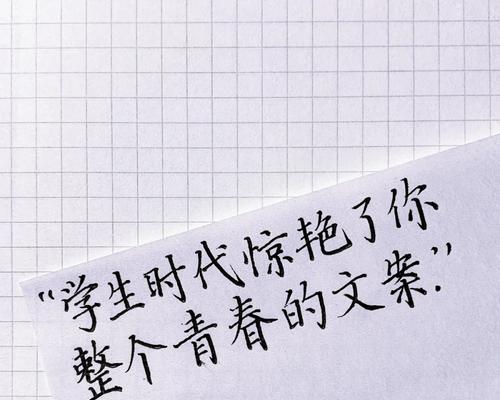 “学生时代惊艳了你
整个青春的文案.”